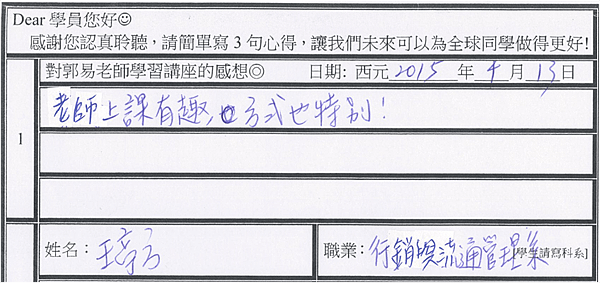 Dear 學員您好☺
感謝您認真聆聽，請簡單寫 3 句心得，讓我們未來可以為全球同學做得更好!
對郭易老師學習講座的感想◎ 日期: 西元 2015 年 4 月 13 日
1
老師上課有趣，方式也特別！
姓名：
職業：行銷與流通管理系 [學生請寫科系]